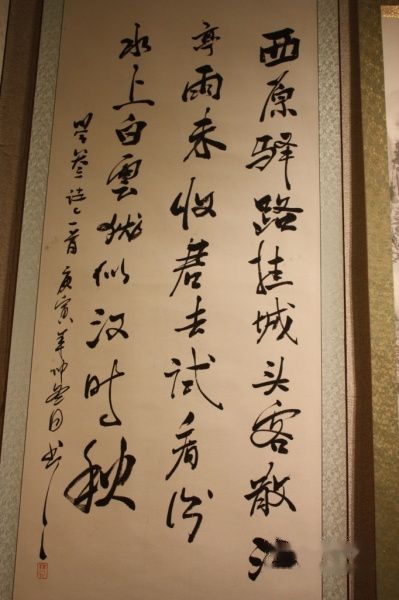 西原驿路挂城头客散江
亭雨未收君去试看汾
水上白雲犹似汉时秋
岑参诗一首庚寅年仲日书